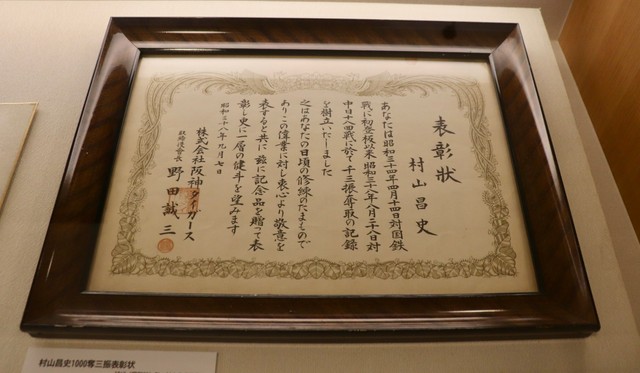 表彰状
村山昌史
あなたは昭和三十四年四月十四日対国鉄
戦に初登板以来昭和三十八年八月二十八日対
中日十八回戦に於て千三振奪取の記録
を樹立いたしました
之はあなたの日頃の修練のたまもので
ありこの偉業に対し衷心より敬意を
表すると共に茲に記念品を贈って表
彰し更に一層の健斗を望みます
昭和三十八年九月七日
株式会社阪神タイガース
取締役会長 野田誠三
村山昌史1000奪三振表彰状